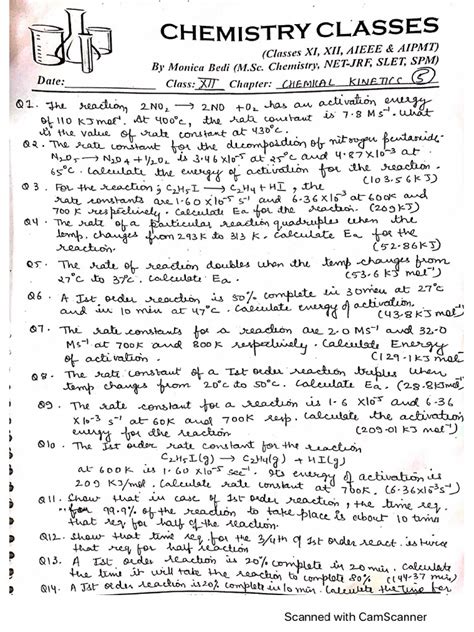 CHEMISTRY CLASSES
(Classes XI, XII, AIEEE & AIPMT)
By Monica Bedi (M.Sc. Chemistry, NET-JRF, SLET, SPM)
Date: Class: XII Chapter: CHEMICAL KINETICS 5
Q1. The reaction, 2NO2 → 2NO + O2 has an activation energy
of 110 KJ mol⁻¹. At 400°C, the rate constant is 7.8 M⁻¹s⁻¹. What
is the value of rate constant at 430°C.
Q2. The rate constant for the decomposition of nitrogen pentoxide
N2O5 → N2O4 + 1/2 O2 is 3.46 x 10⁻⁵ at 25°C and 4.87 x 10⁻³ at
65°C. Calculate the energy of activation for the reaction.
(103.56 KJ)
Q3. For the reaction; C2H5I → C2H4 + HI, the
rate constants are 1.60 x 10⁻⁵ s⁻¹ and 6.36 x 10⁻³ at 600K and
700K respectively. Calculate Ea for the reaction. (209 KJ)
Q4. The rate of a particular reaction quadruples when the
temp. changes from 293K to 313K. Calculate Ea for the
reaction. (52.86 KJ)
Q5. The rate of reaction doubles when the temp changes from
27°C to 37°C. Calculate Ea. (53.6 KJ mol⁻¹)
Q6. A Ist order reaction is 50% complete in 30 min at 27°C
and in 10 min at 47°C. Calculate energy of activation.
(43.8 KJ mol⁻¹)
Q7. The rate constants for a reaction are 2.0 Ms⁻¹ and 32.0
Ms⁻¹ at 700K and 800K respectively. Calculate Energy
of activation. (129.1 KJ mol
Q8. The rate constant of a Ist order reaction triples when
temp changes from 20°C to 50°C. Calculate Ea. (28.8 KJ mol
Q9. The rate constant for a reaction is 1.6 x10⁻⁵ and 6.36
x10⁻³ s⁻¹ at 60K and 700K resp. Calculate the activation
energy for the reaction (209.01 KJ mol⁻¹)
Q10. The Ist order rate constant for the reaction
C2H5I(g) → C2H4(g) + HI(g)
at 600K is 1.60 x10⁻⁵ sec⁻¹. Its energy of activation is
209 KJ/mol. Calculate rate constant at 700K. (6.36x10⁻³s⁻¹)
Q11. Show that in case of Ist order reaction, the time req.
for 99.9% of the reaction to take place is about 10 times
that req for half of the reaction.
Q12. Show that time req. for the 3/4th of Ist order react. is twice
that req for half reaction
Q13. A Ist order reaction is 20% complete in 20 min. Calculate
the time it will take the reaction to complete 80% (144.37 min)
Q14. A Ist order reaction is 20% in 10 min. Calculate the time for
Scanned with CamScanner